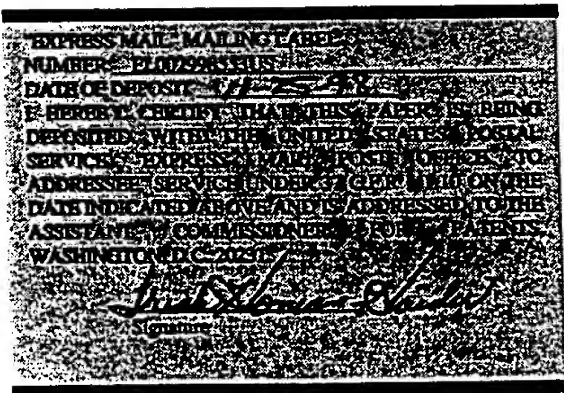 "EXPRESS MAIL" MAILING LABEL
NUMBER:
DATE OF DEPOSIT
I HEREBY CERTIFY THAT THIS PAPER IS BEING
DEPOSITED WITH THE UNITED STATES POSTAL
SERVICE "EXPRESS MAIL POST OFFICE TO
ADDRESSEE" SERVICE UNDER 37 C.F.R. 1.10 ON THE
DATE INDICATED ABOVE AND IS ADDRESSED TO THE
ASSISTANT COMMISSIONER FOR PATENTS,
WASHINGTON, D.C. 20231.
Signature